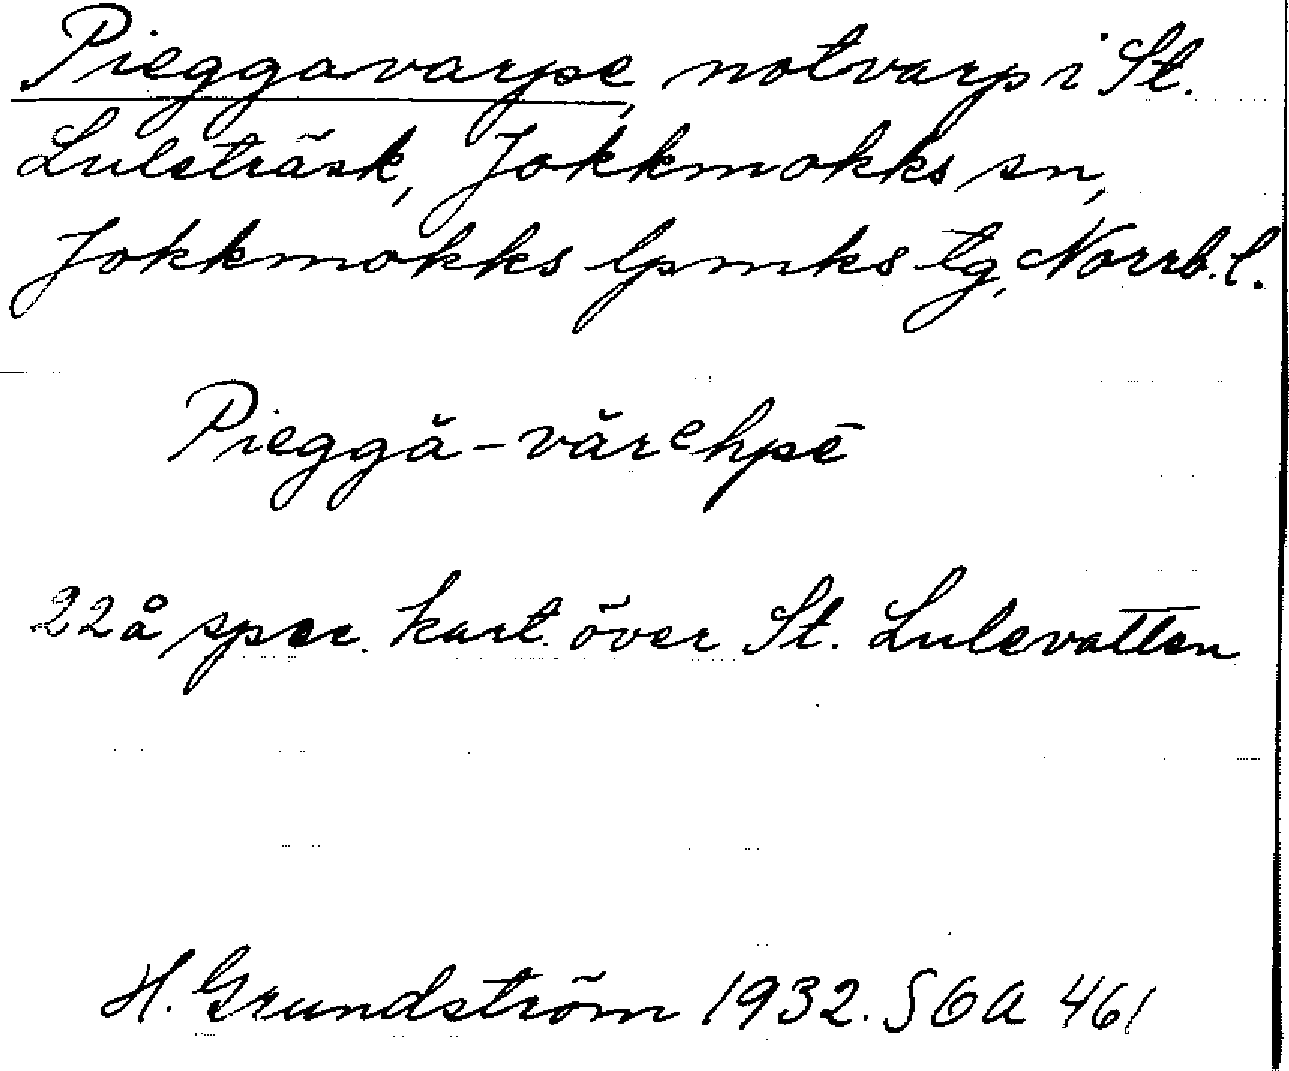 Pieggavarpe, notvarp i St.
Luleträsk, Jokkmokks sn,
Jokkmokks lpmks tg, Norrb. l.
Pieggă-vărehpē
22å spec. kart. över St. Lulevatten
H. Grundström 1932. SOA 461